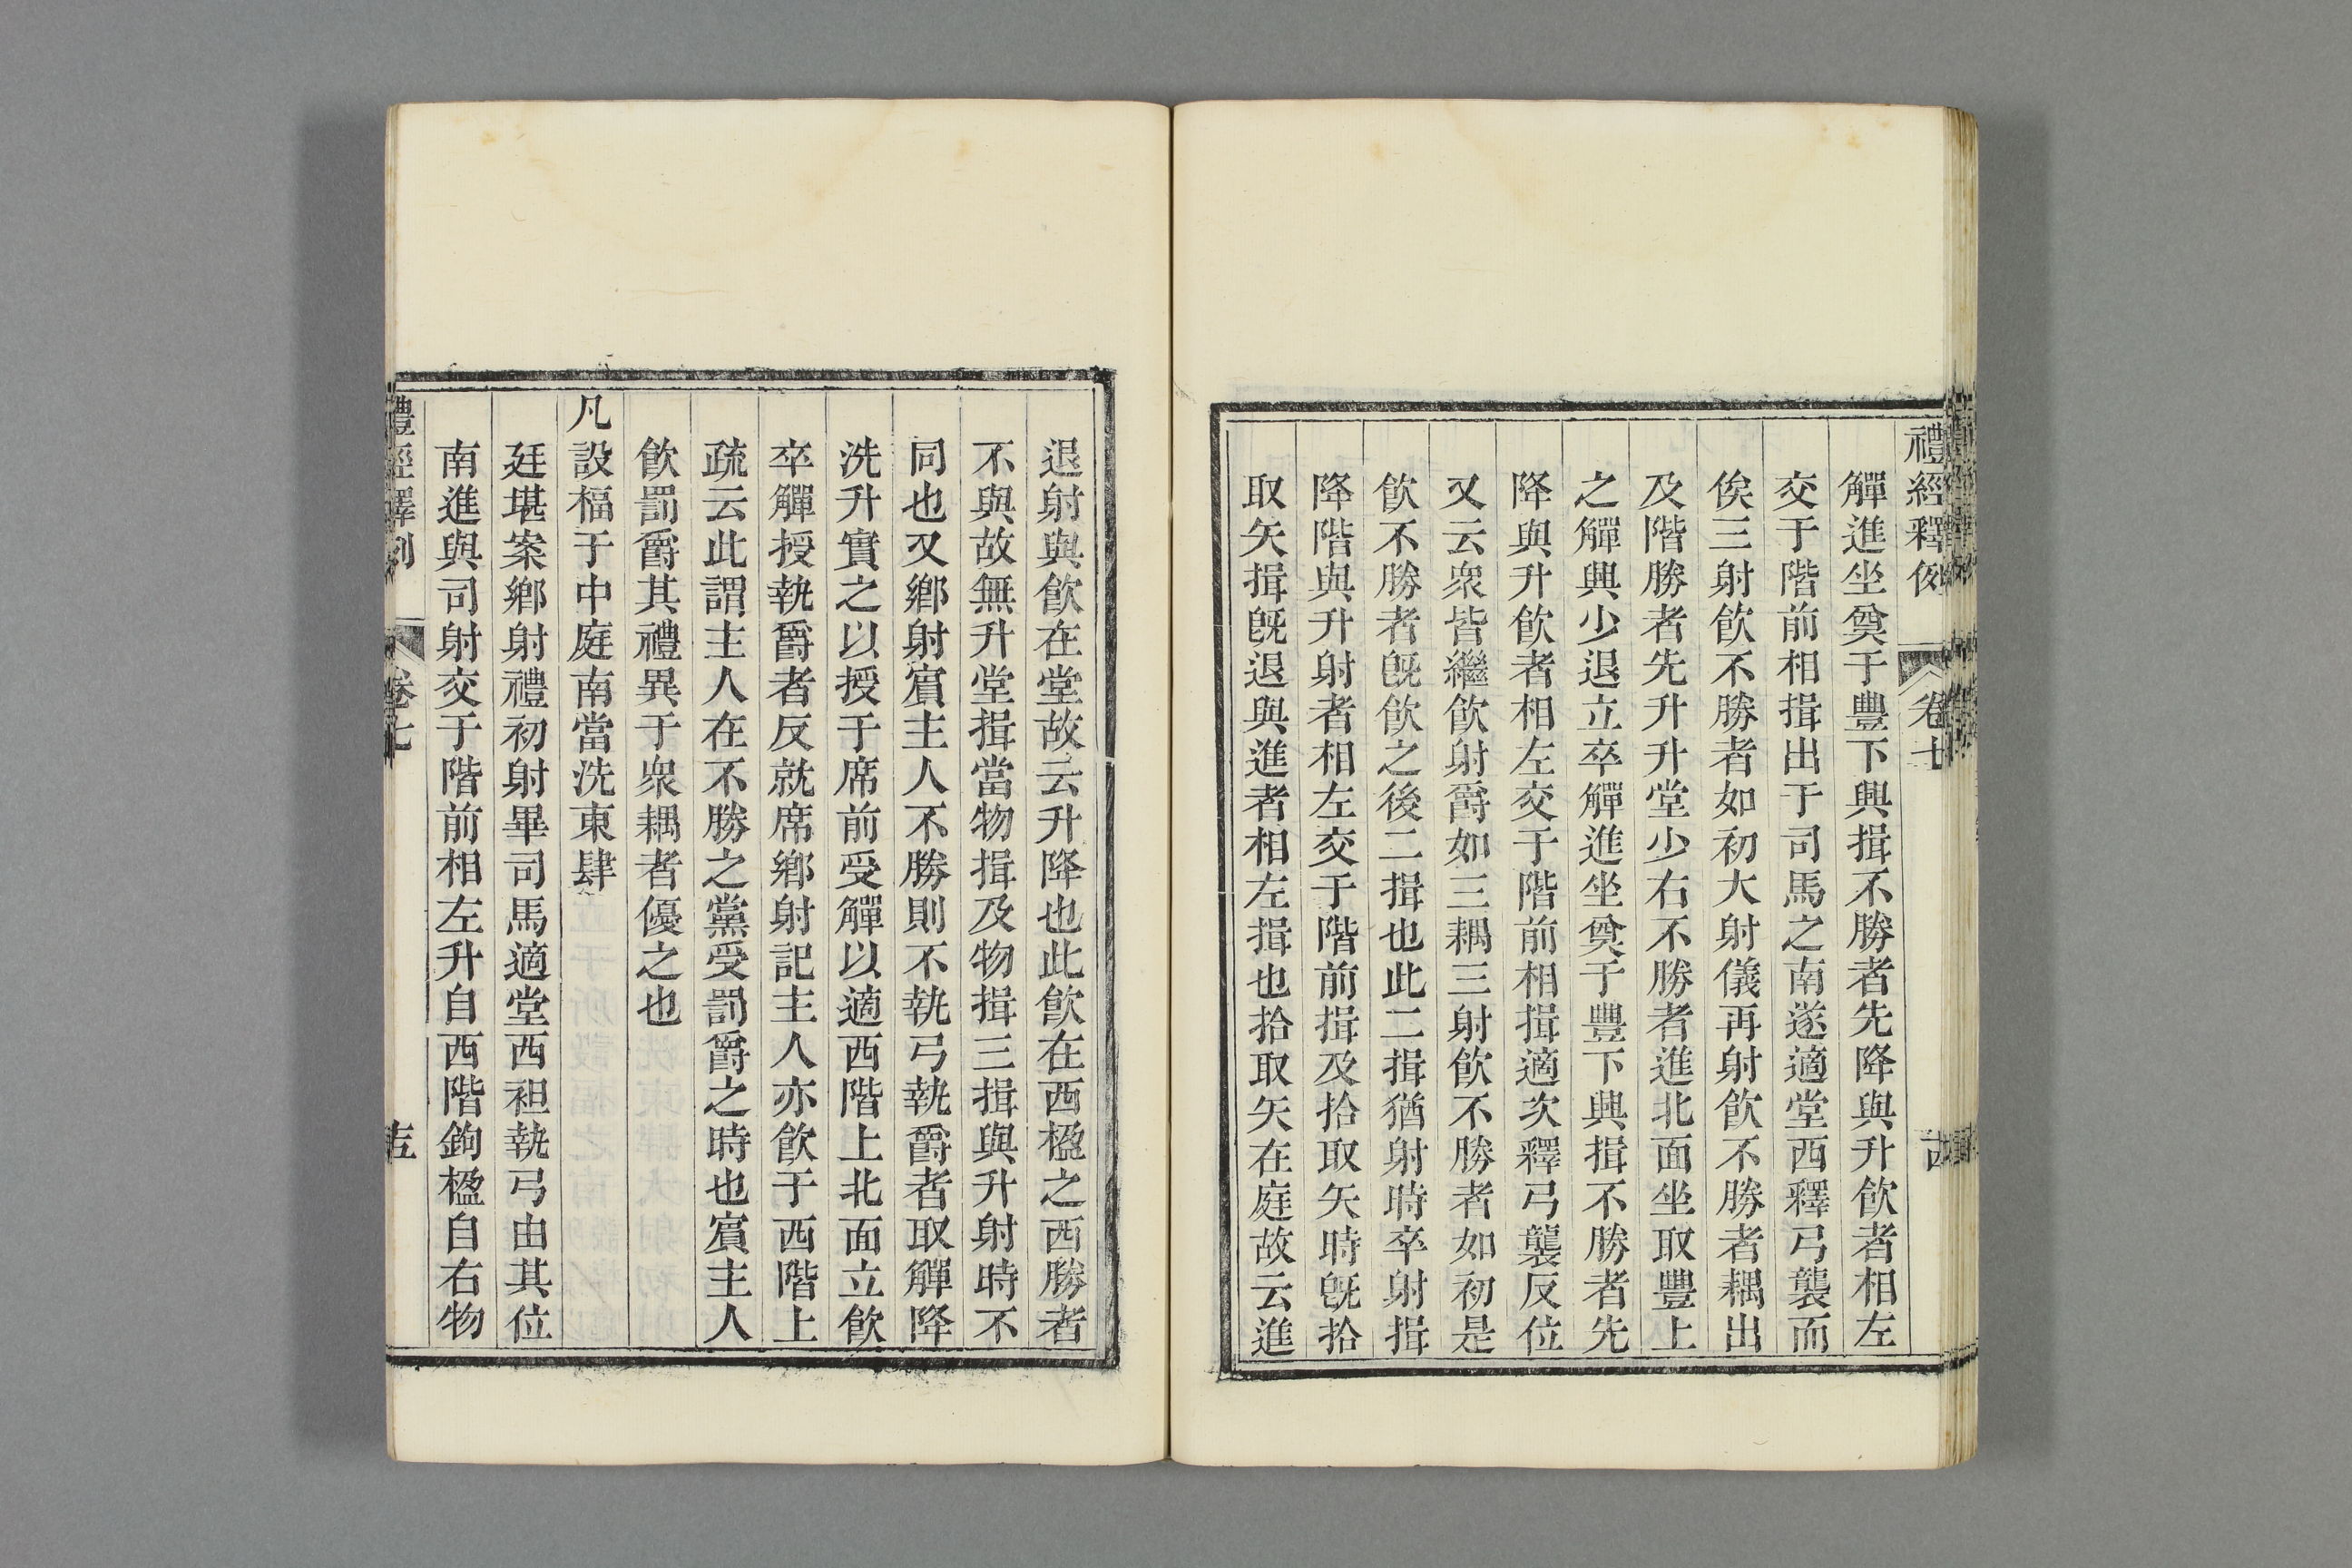 禮經釋例 卷七 十四
觶進坐奠于豐下興揖不勝者先降與升飲者相左
交于階前相揖出于司馬之南遂適堂西釋弓襲而
俟三射飲不勝者如初大射儀再射飲不勝者耦出
及階勝者先升升堂少右不勝者進北面坐取豐上
之觶興少退立卒觶進坐奠于豐下興揖不勝者先
降與升飲者相左交于階前相揖適次釋弓襲反位
又云衆皆繼飲射爵如三耦三射飲不勝者如初是
飲不勝者旣飲之後二揖也此二揖猶射時卒射揖
降階與升射者相左交于階前揖及拾取矢時旣拾
取矢揖旣退與進者相左揖也拾取矢在庭故云進
退射與飲在堂故云升降也此飲在西楹之西勝者
不與故無升堂揖當物揖及物揖三揖與升射時不
同也又鄉射賓主人不勝則不執弓執爵者取觶降
洗升實之以授于席前受觶以適西階上北面立飲
卒觶授執爵者反就席鄉射記主人亦飲于西階上
疏云此謂主人在不勝之黨受罰爵之時也賓主人
飲罰爵其禮異于衆耦者優之也
凡設楅于中庭南當洗東肆
廷堪案鄉射禮初射畢司馬適堂西袒執弓由其位
南進與司射交于階前相左升自西階鉤楹自右物
禮經釋例 卷七 十五